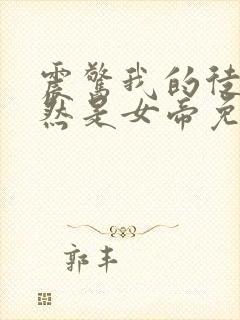 震惊我的徒
然是女帝免
郭丰